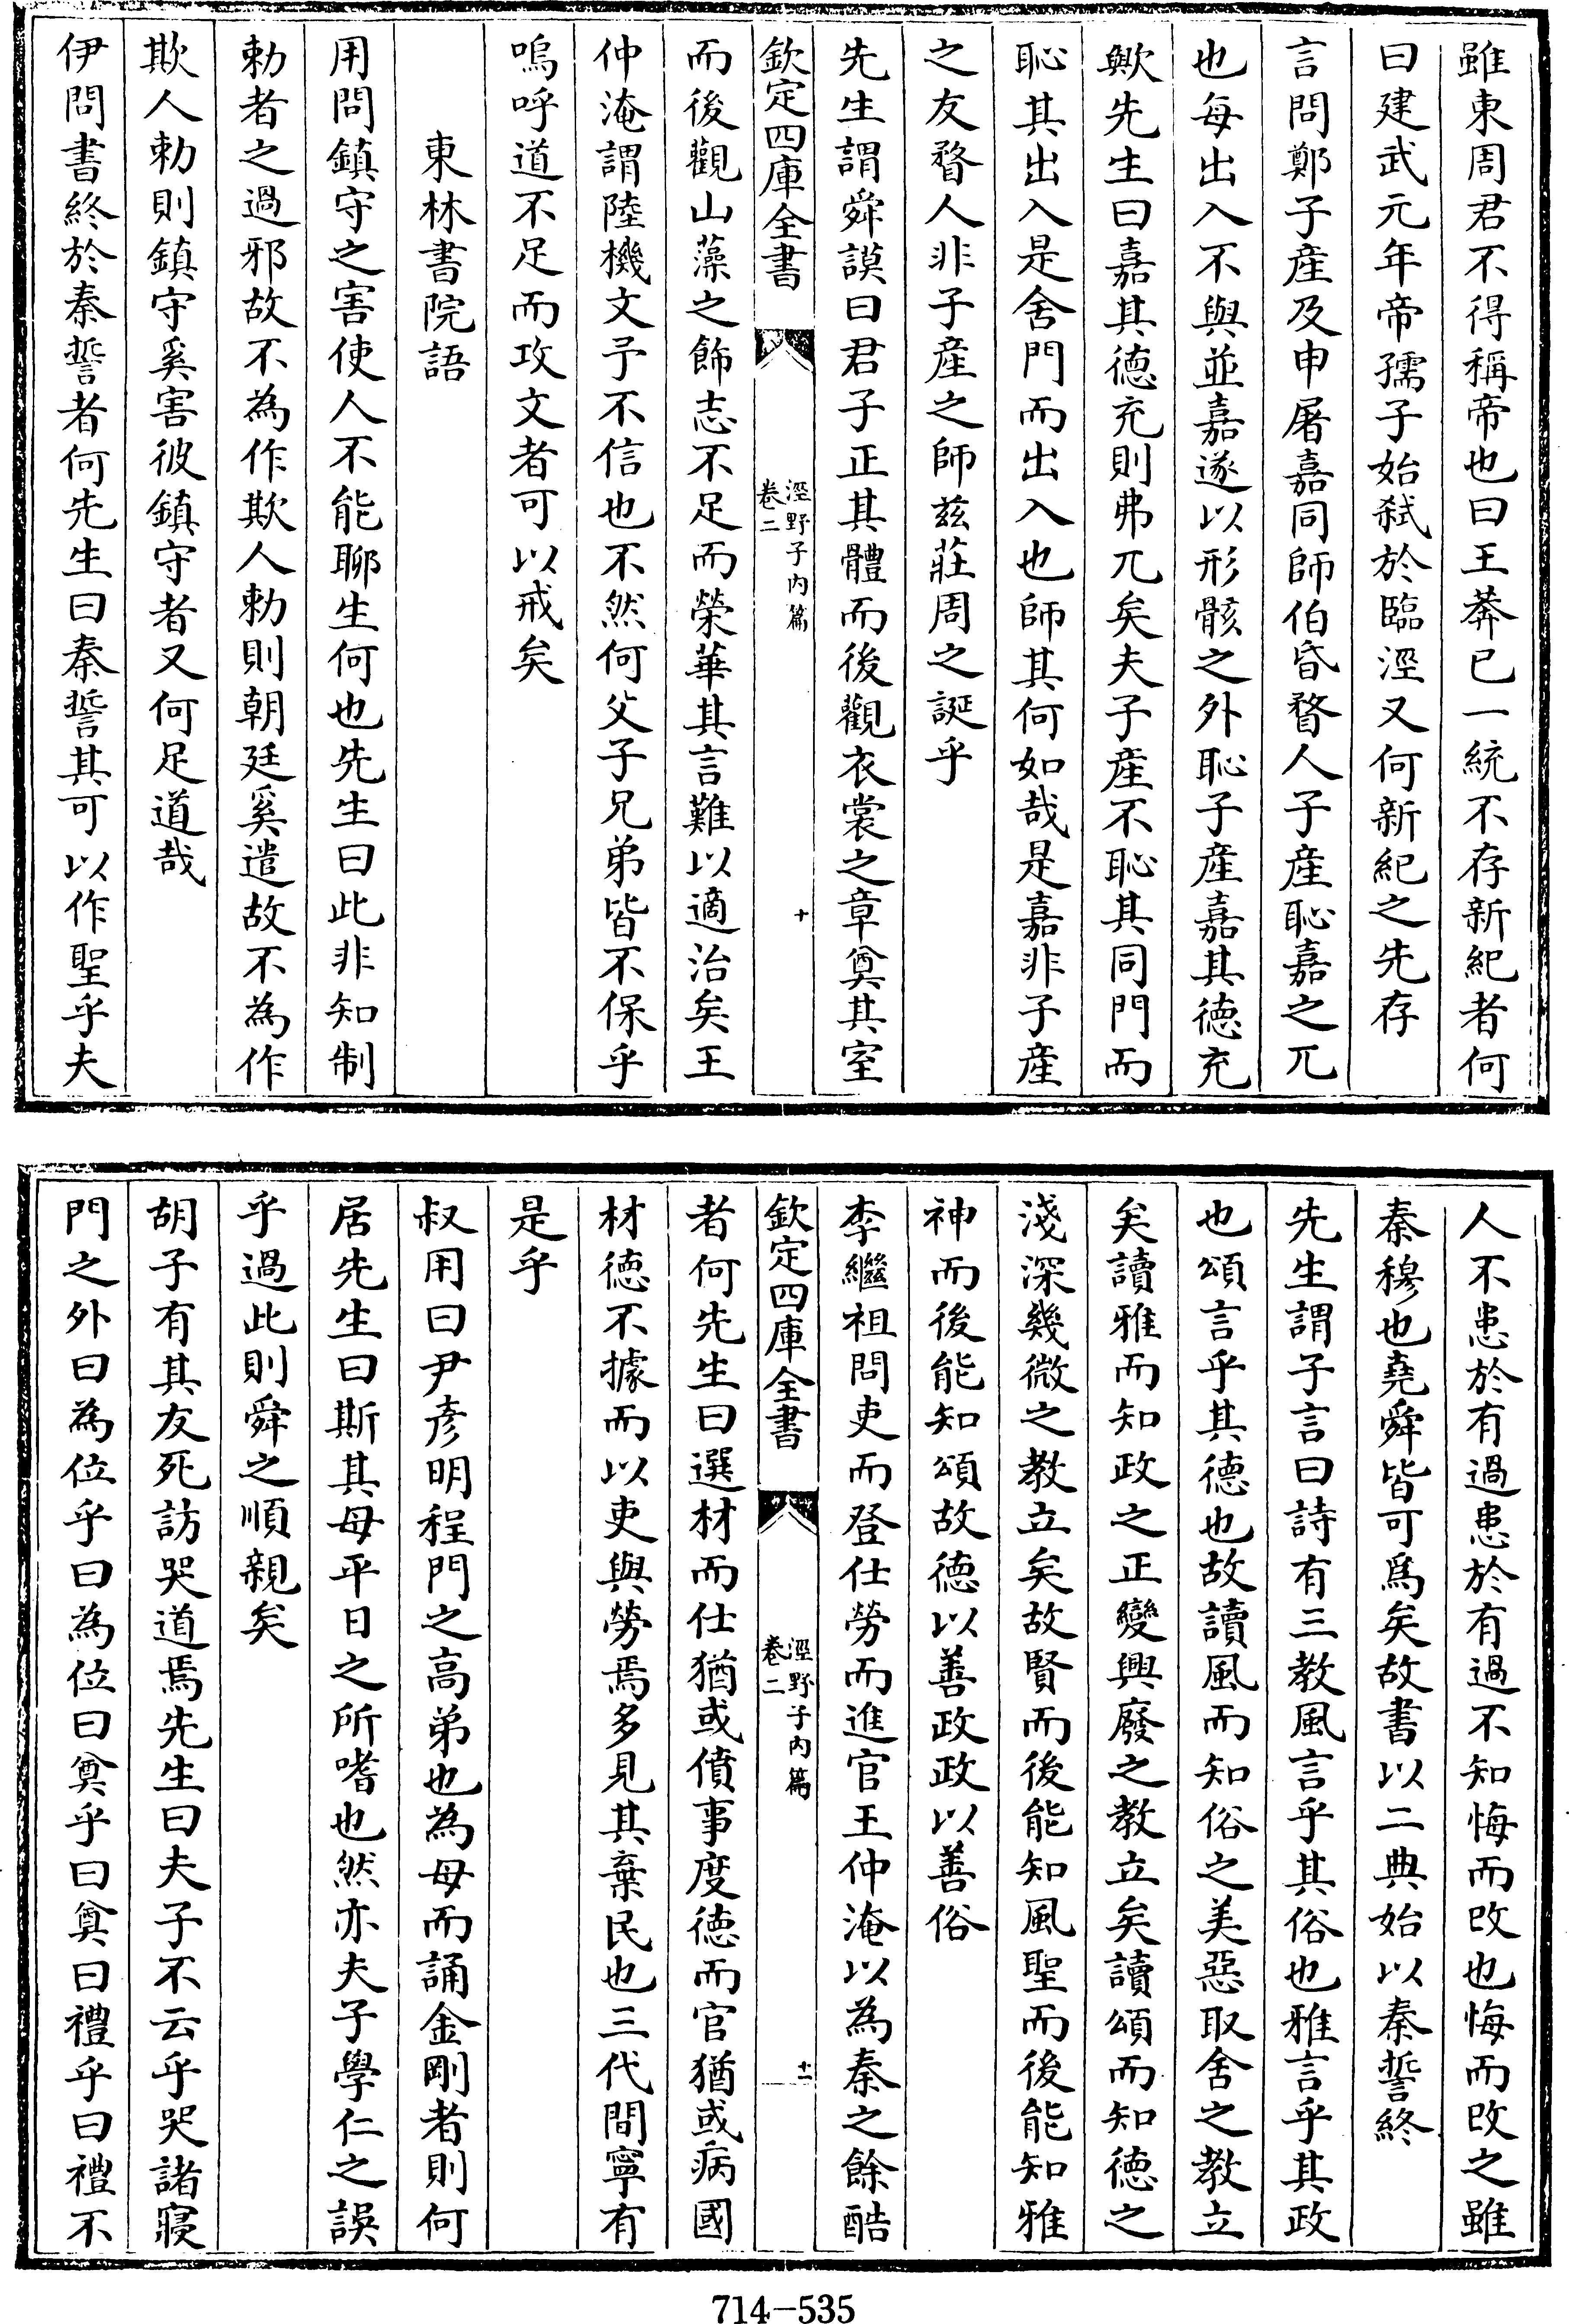 雖東周君不得稱帝也曰王莽已一統不存新紀者何
曰建武元年帝孺子始弑於臨涇又何新紀之先存
言問鄭子産及申屠嘉同師伯昏瞀人子産恥嘉之兀
也每出入不與並嘉遂以形骸之外恥子産嘉其徳充
歟先生曰嘉其徳充則弗兀矣夫子産不恥其同門而
恥其出入是舍門而出入也師其何如哉是嘉非子産
之友瞀人非子産之師兹莊周之誕乎
先生謂舜謨曰君子正其體而後觀衣裳之章奠其室
欽定四庫全書
涇野子内篇
卷二
十
而後觀山藻之飾志不足而榮華其言難以適治矣王
仲淹謂陸機文予不信也不然何父子兄弟皆不保乎
嗚呼道不足而攻文者可以戒矣
東林書院語
用問鎮守之害使人不能聊生何也先生曰此非知制
勅者之過邪故不為作欺人勅則朝廷奚遣故不為作
欺人勅則鎮守奚害彼鎮守者又何足道哉
伊問書終於秦誓者何先生曰秦誓其可以作聖乎夫
人不患於有過患於有過不知悔而改也悔而改之雖
秦穆也堯舜皆可爲矣故書以二典始以秦誓終
先生謂子言曰詩有三教風言乎其俗也雅言乎其政
也頌言乎其徳也故讀風而知俗之美惡取舍之教立
矣讀雅而知政之正變興廢之教立矣讀頌而知徳之
淺深幾微之教立矣故賢而後能知風聖而後能知雅
神而後能知頌故徳以善政政以善俗
李繼祖問吏而登仕勞而進官王仲淹以為秦之餘酷
欽定四庫全書
涇野子内篇
卷二
十一
者何先生曰選材而仕猶或僨事度徳而官猶或病國
材徳不據而以吏與勞焉多見其棄民也三代間寧有
是乎
叔用曰尹彦明程門之高弟也為母而誦金剛者則何
居先生曰斯其母平日之所嗜也然亦夫子學仁之誤
乎過此則舜之順親矣
胡子有其友死訪哭道焉先生曰夫子不云乎哭諸寢
門之外曰為位乎曰為位曰奠乎曰奠曰禮乎曰禮不
714-535